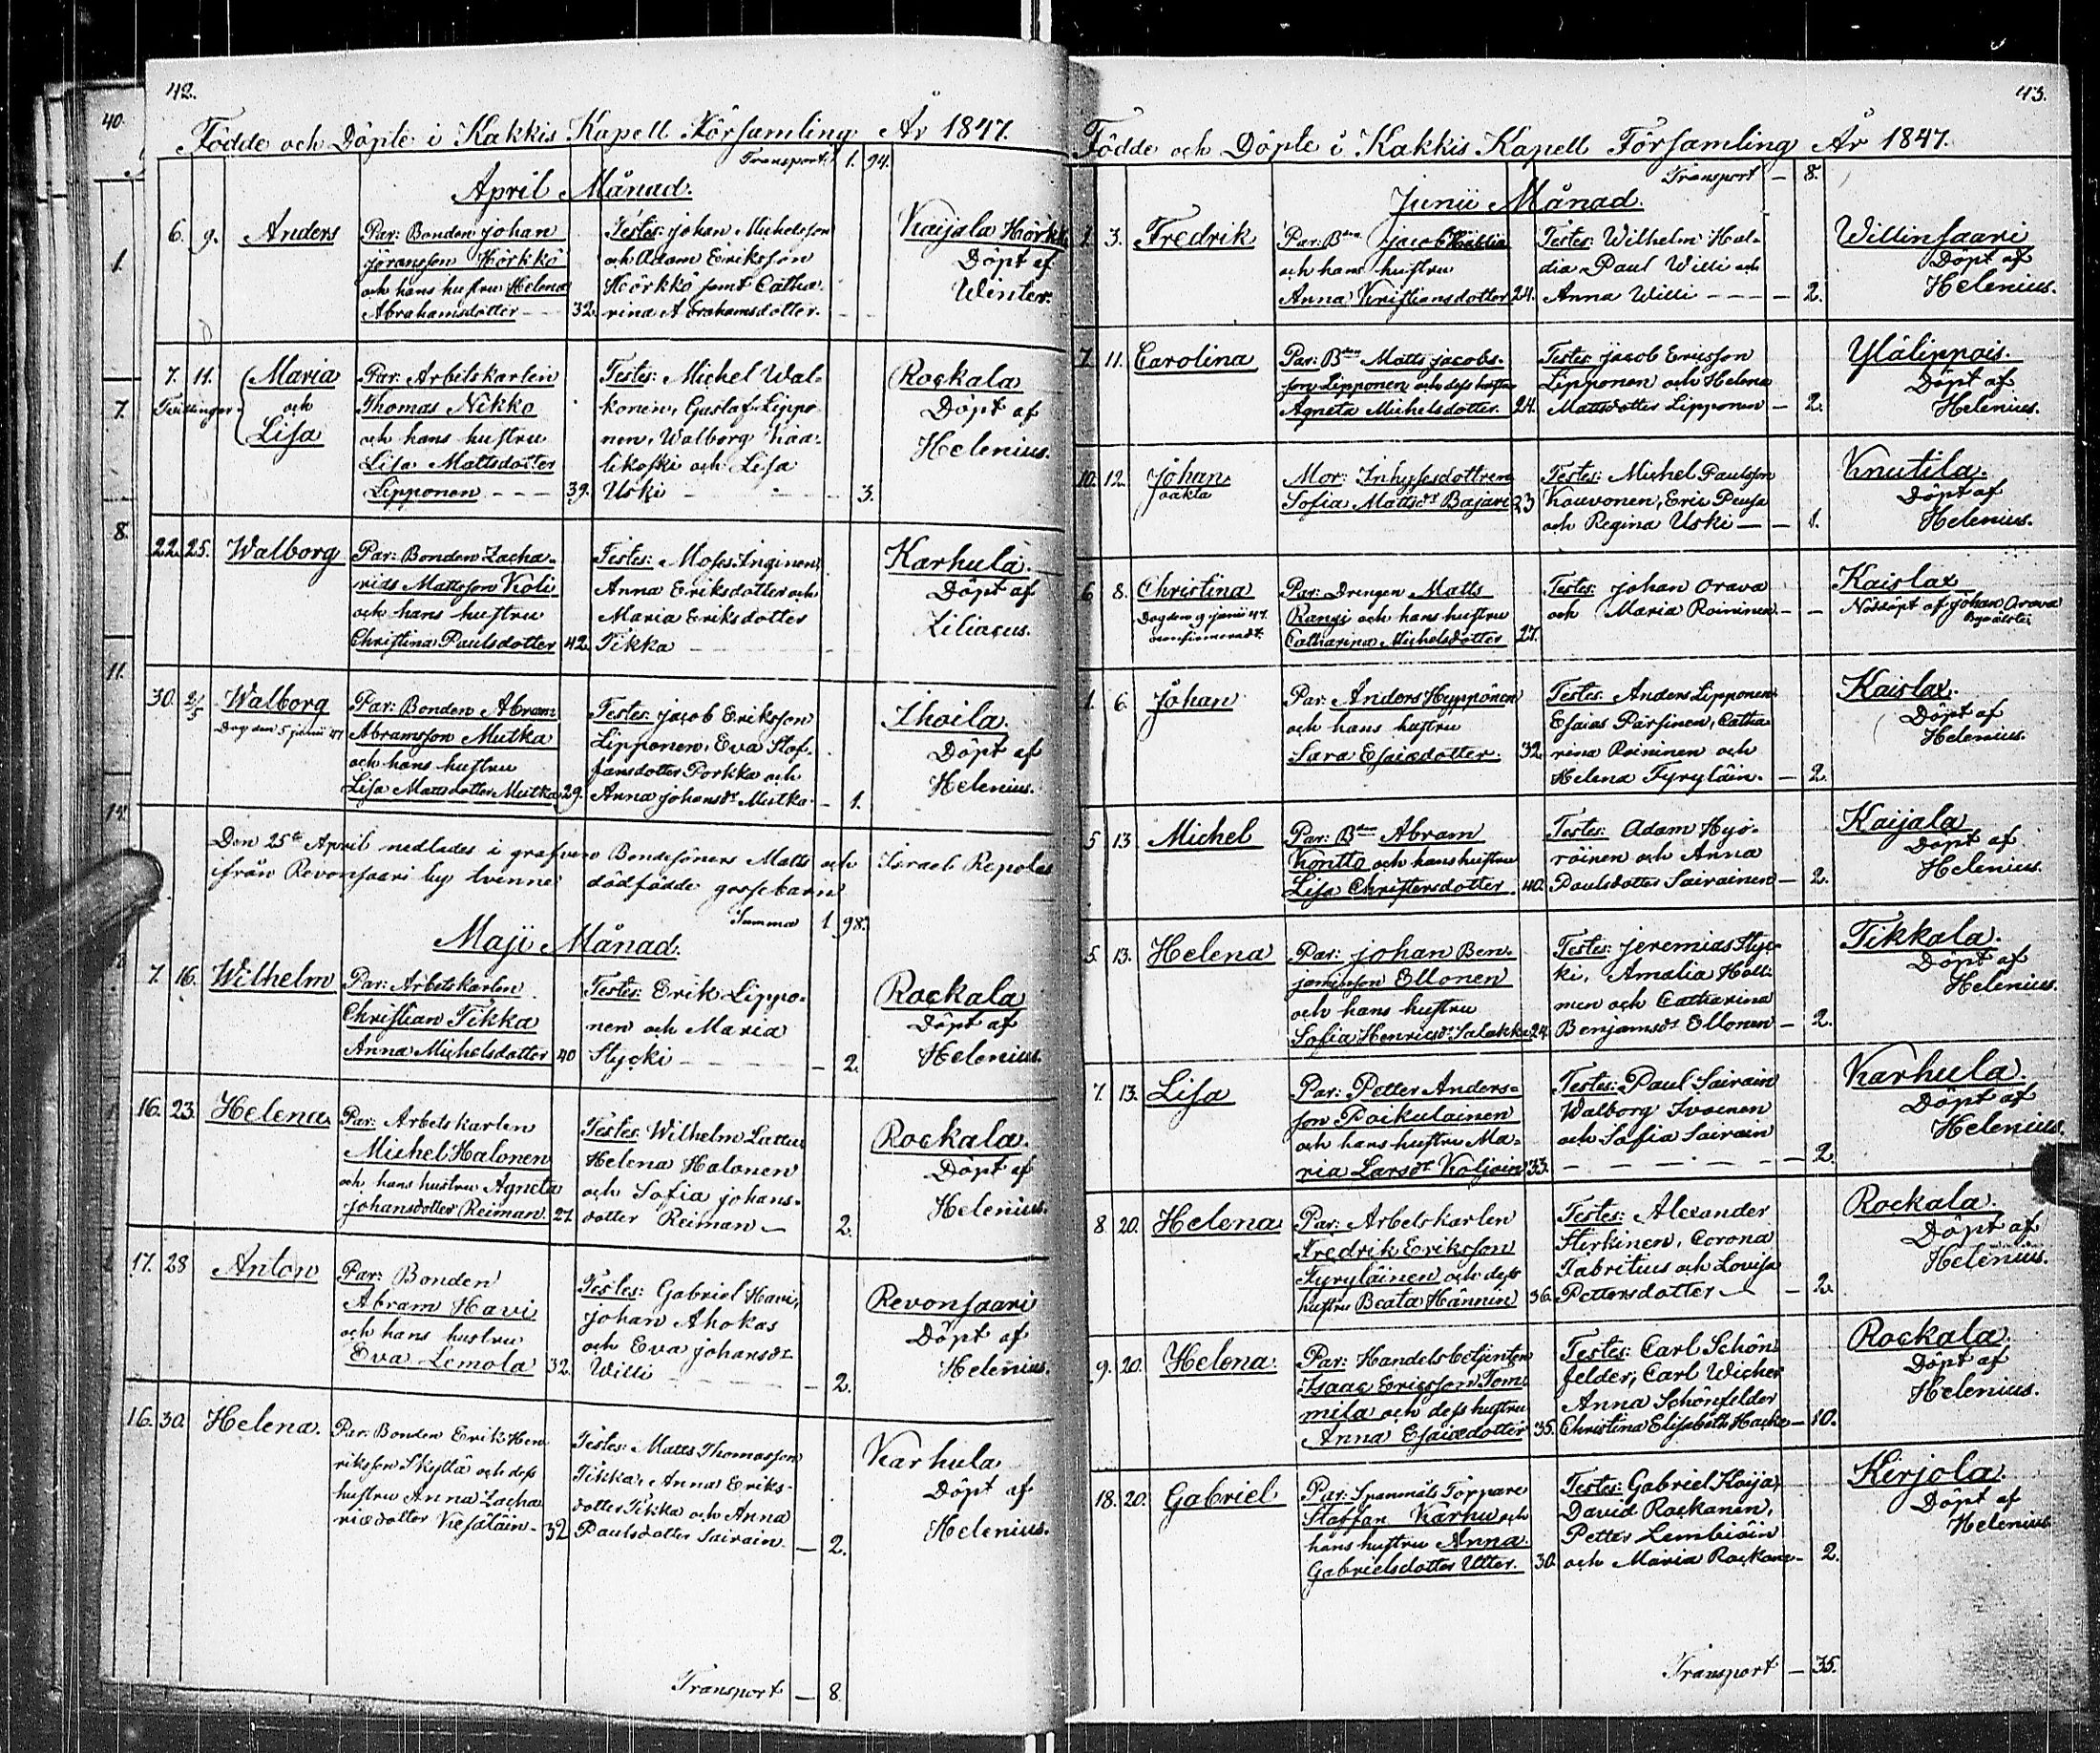 42.
40.
Födde och Döpte i Kakkis Kapell Församling År 1847.
Transport 1. 94.
April Månad.
6. 9. Anders
Par: Bonden Johan
Göransson Hörkkö
och hans hustru Helena
Abrahamsdotter 32.
Testes: Johan Michelsson
och Adam Eriksson
Hörkkö samt Catha-
rina Abrahamsdotter.
Kaijala Hörkkö
Döpt af
Winter.
7. 11. Maria
Tvillingar och
Lisa
Par: Arbetskarlen
Thomas Nikko
och hans hustru
Lisa Mattsdotter
Lipponen 39.
Testes: Michel Wal-
konen, Gustaf Lippo-
nen, Walborg Kaa-
likoski och Lisa
Uski 3.
Rockala
Döpt af
Helenius.
22. 25. Walborg
Par: Bonden Zacha-
rias Mattsson Koli
och hans hustru
Christina Paulsdotter 42.
Testes: Moses Inginen,
Anna Eriksdotter och
Maria Eriksdotter
Tikka
Karhula.
Döpt af
Ziliacus.
30. 2/5 Walborg
Dog den 5 junii 47
Par: Bonden Abram
Abramsson Mutka
och hans hustru
Lisa Mattsdotter Mutka 29.
Testes: Jacob Eriksson
Lipponen, Eva Staf-
fansdotter Porkka och
Anna Johansdr Mutka - 1.
Ihoila.
Döpt af
Helenius.
Den 25te April nedlades i grafven Bondesöners Matts och Israel Repolas
ifrån Revonsaari by tvenne dödfödde gossebarn
Summa 1 98.
Maji Månad.
7. 16. Wilhelm
Par: Arbetskarlen
Christian Tikka
Anna Michelsdotter 40
Testes: Erik Lippo-
nen och Maria
Stycki - 2.
Rockala
Döpt af
Helenius.
16. 23. Helena
Par: Arbetskarlen
Michel Halonen
och hans hustru Agneta
Johansdotter Reiman. 27.
Testes: Wilhelm Lattu
Helena Halonen
och Sofia Johans-
dotter Reiman 2.
Rockala.
Döpt af
Helenius.
17. 28 Anton
Par: Bonden
Abram Havi
och hans hustru
Eva Lemola 32.
Testes: Gabriel Havi,
Johan Ahokas
och Eva Johansdr
Willi - 2.
Revonsaari
Döpt af
Helenius.
16. 30. Helena.
Par: Bonden Erik Hen
riksson Skyttä och dess
hustru Anna Zacha
riædotter Kesäläin - 32
Testes: Matts Thomasson
Tikka, Anna Eriks-
dotter Tikka och Anna
Paulsdotter Sairain. - 2.
Karhula
Döpt af
Helenius.
Transport - 8.
43.
Födde och Döpte i Kakkis Kapell Församling År 1847.
Transport - 8.
Junii Månad.
1. 3. Fredrik
Par: Bden Jacob Haldia
och hans hustru
Anna Kristiansdotter 24.
Testes: Wilhelm Hal-
dia Paul Willi och
Anna Willi - 2.
Willinsaari
Döpt af
Helenius.
7. 11. Carolina
Par: Bden Matts Jacobs-
son Lipponen och dess hustru
Agneta Michelsdotter. 24.
Testes: Jacob Ericsson
Lipponen och Helena
Mattsdotter Lipponen - 2.
Ylälippois.
Döpt af
Helenius.
10. 12. Johan
oäkta
Mor: Inhysesdottren
Sofia Mattsdr Bajari 23
Testes: Michel Paulsson
Kouvonen, Eric Peusa
och Regina Uski - 1.
Knutila.
Döpt af
Helenius.
6 8. Christina
Dog den 9 junii 47.
Par: Drengen Matts
Rangi och hans hustru
Catharina Michelsdotter 27.
Testes: Johan Orava
och Maria Roininen -
Kaislax
Nöddöpt af Johan Orava
1. 6. Johan
Par: Anders Hyppönen
och hans hustru
Sara Esaiædotter. 32.
Testes: Anders Lipponen
Esaias Pärsinen, Catha-
rina Roininen och
Helena Tyryläin. - 2.
Kaislax.
Döpt af
Helenius.
5 13 Michel
Par: Bden Abram
Kontto och hans hustru
Lisa Christersdotter 40.
Testes: Adam Hyö-
röinen och Anna
Paulsdotter Sairainen - 2.
Kaijala
Döpt af
Helenius.
5. 13. Helena
Par: Johan Ben-
jaminsson Ellonen
och hans hustru
Sofia Henricsdr Salakka 24.
Testes: Jeremias Styc-
ki, Amalia Holl-
men och Catharina
Benjamsdr Ellonen - 2.
Tikkala.
Döpt af
Helenius.
7. 13. Lisa
Par: Petter Anders-
son Poikulainen
och hans hustru Ma-
ria Larsdr Koljoin 33.
Testes: Paul Sairain
Walborg Ivoinen
och Sofia Sairain
- 2.
Karhula.
Döpt af
Helenius.
8. 20. Helena
Par: Arbetskarlen
Fredrik Eriksson
Tyryläinen och dess
hustru Beata Hännin 36.
Testes: Alexander
Stirkinen, Corona
Fabritius och Lovisa
Pettersdotter - 2.
Rockala.
Döpt af
Helenius.
9. 20. Helena.
Par: Handelsbetjenten
Isaac Ericsson Tom-
mila och dess hustru
Anna Esaiædotter 35.
Testes: Carl Schön-
felder, Carl Wicher
Anna Schönfelder
Christina Elisabeth Hacke - 10.
Rockala.
Döpt af
Helenius.
18. 20. Gabriel
Par: Spanmåls Torpare
Staffan Karhu och
hans hustru Anna
Gabrielsdotter Utter. 30.
Testes: Gabriel Koija,
David Rockanen,
Petter Lembiäin
och Maria Rockane - 2.
Kirjola.
Döpt af
Helenius
Transport - 35.